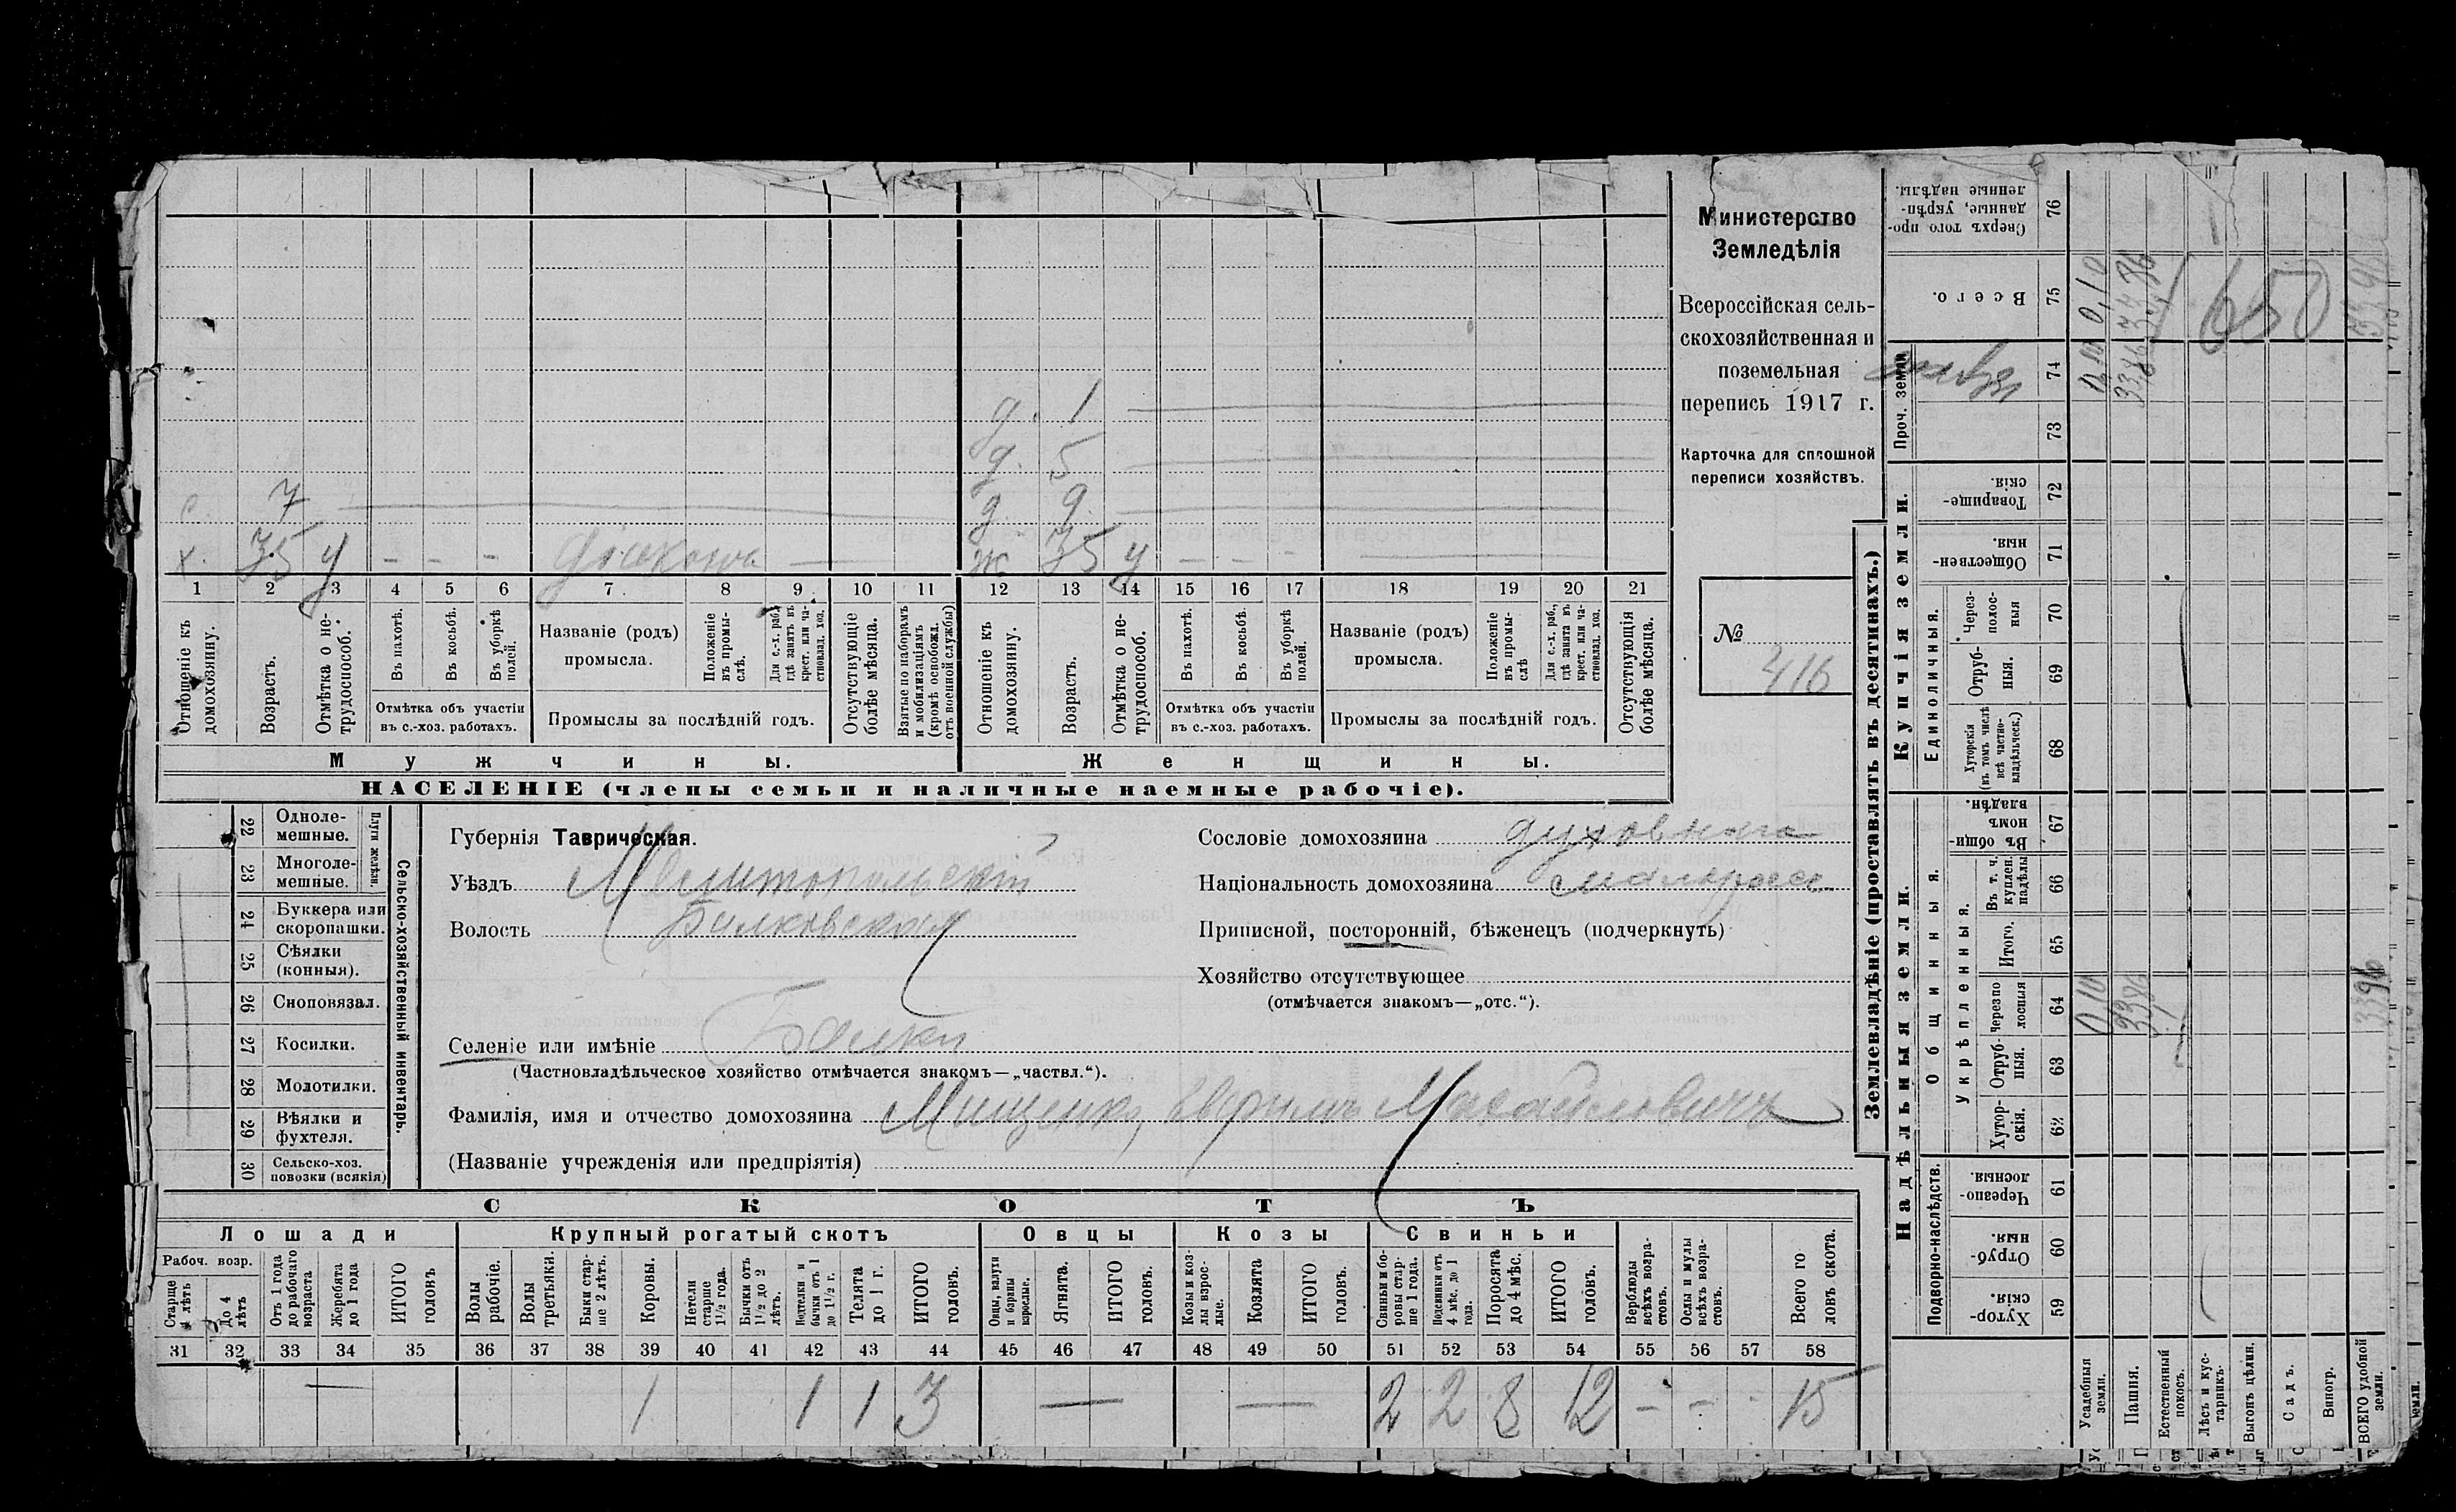 Министерство
Земледѣлія
Всероссійская сель-
скохозяйственная и
поземельная
перепись 1917 г.
Карточка для сплошной
переписи хозяйствъ.
№ 416
д. 1
д. 5
с. 7
д. 9
х. 35 у - - -
ж 35 у - - -
1 2 3 4 5 6 7 8 9 10 11 12 13 14 15 16 17 18 19 20 21
Отношеніе къ домохозяину.
Возрастъ.
Отмѣтка о не-трудоспособ.
Въ пахотѣ.
Въ косьбѣ.
Въ уборкѣ полей.
Отмѣтка объ участіи
въ с.-хоз. работахъ.
Названіе (родъ)
промысла.
Положеніе въ промы-слѣ.
Для с.-х. раб., гдѣ занятъ въ крест. или ча-стновлад. хоз.
Промыслы за послѣдній годъ.
Отсутствующіе болѣе мѣсяца.
Взятые по наборамъ и мобилизаціямъ (кромѣ освобожд. отъ военной службы)
Отношеніе къ домохозяину.
Возрастъ.
Отмѣтка о не-трудоспособ.
Въ пахотѣ.
Въ косьбѣ.
Въ уборкѣ полей.
Отмѣтка объ участіи
въ с.-хоз. работахъ.
Названіе (родъ)
промысла.
Положеніе въ промы-слѣ
Для с.-х. раб., гдѣ занята въ крест. или ча-стновлад. хоз.
Промыслы за послѣдній годъ.
Отсутствующія болѣе мѣсяца.
Мужчины.
Женщины.
НАСЕЛЕНІЕ (члены семьи и наличные наемные рабочіе).
Сельско-хозяйственный инвентарь.
Плуги желѣзн.
22 Одноле-мешные.
23 Многоле-мешные.
24 Буккера или скоропашки.
25 Сѣялки (конныя).
26 Сноповязал.
27 Косилки.
28 Молотилки.
29 Вѣялки и фухтеля.
30 Сельско-хоз. повозки (всякія)
Губернія Таврическая.
Уѣздъ Мелитопольскій
Волость Балковская
Селеніе или имѣніе Балки
(Частновладѣльческое хозяйство отмѣчается знакомъ—„частвл.“).
Фамилія, имя и отчество домохозяина Мищенко, Михайловичъ
(Названіе учрежденія или предпріятія)
Сословіе домохозяина духовнаго
Національность домохозяина малоросс
Приписной, посторонній, бѣженецъ (подчеркнуть)
Хозяйство отсутствующее
(отмѣчается знакомъ—„отс.“).
СКОТЪ
Лошади
Крупный рогатый скотъ
Овцы
Козы
Свиньи
Рабоч. возр.
Старше 4 лѣтъ
До 4 лѣтъ
Отъ 1 года до рабочаго возраста
Жеребята до 1 года
ИТОГО головъ
Волы рабочіе.
Волы третьяки.
Быки стар-ше 2 лѣтъ.
Коровы.
Нетели старше 1½ года.
Бычки отъ 1½ до 2 лѣтъ.
Подтелки и бычки отъ 1 до 1½ г.
Телята до 1 г.
ИТОГО головъ.
Овцы, валухи и бараны взрослые.
Ягнята.
ИТОГО головъ.
Козы и коз-лы взрос-лые.
Козлята
ИТОГО головъ.
Свиньи и бо-ровы стар-ше 1 года.
Подсвинки отъ 4 мѣс. до 1 года.
Поросята до 4 мѣс.
ИТОГО головъ.
Верблюды всѣхъ возра-стовъ.
Ослы и мулы всѣхъ возра-стовъ.
Всего го ловъ скота.
31 32 33 34 35 36 37 38 39 40 41 42 43 44 45 46 47 48 49 50 51 52 53 54 55 56 57 58
— 1 1 1 3 — — 2 2 8 12 - - 15
Землевладѣніе (проставлять въ десятинахъ.)
Надѣльныя земли.
Купчія земли.
Проч. земли
Подворно-наслѣдств.
Общинныя.
Укрѣпленныя.
Единоличныя.
Сверхъ того про-данные, укрѣп-ленные надѣлы. 76
Всего. 75
74
73
Товарище-скія. 72
Обществен-ныя. 71
Через-полос-ныя 70
Отруб-ныя. 69
Хуторскія (въ томъ числѣ всѣ частно-владѣльческ.) 68
Въ общин номъ владѣн. 67
Въ т. ч. куплен. надѣлы 66
Итого. 65
Черезпо лосныя 64
Отруб-ныя. 63
Хутор-скія. 62
Черезпо-лосныя. 61
Отруб-ныя. 60
Хутор-скія. 59
Усадебныя земли.
Пашня.
Естественный покосъ.
Лѣсъ и кус-тарникъ.
Выгонъ цѣлин.
Садъ.
Виногр.
ВСЕГО удобной земли.
0,10
650
0,10
33,86
33,96
33,96